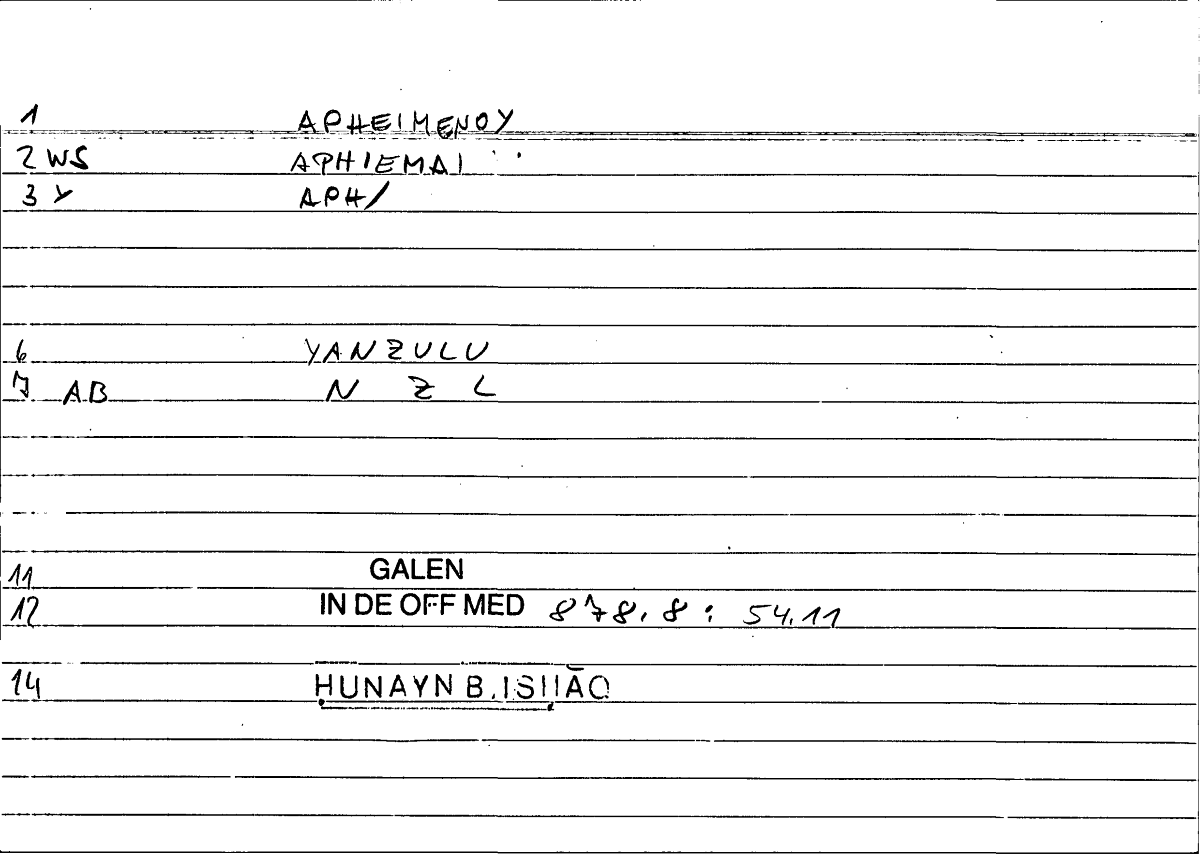 1 APHEIMENOY
2 WS APHIEMAI
3 Y APH/
6 YANZULU
7 AB N Z L
11 GALEN
12 IN DE OFF MED 878.8: 54.11
14 HUNAYN B.ISḤĀQ